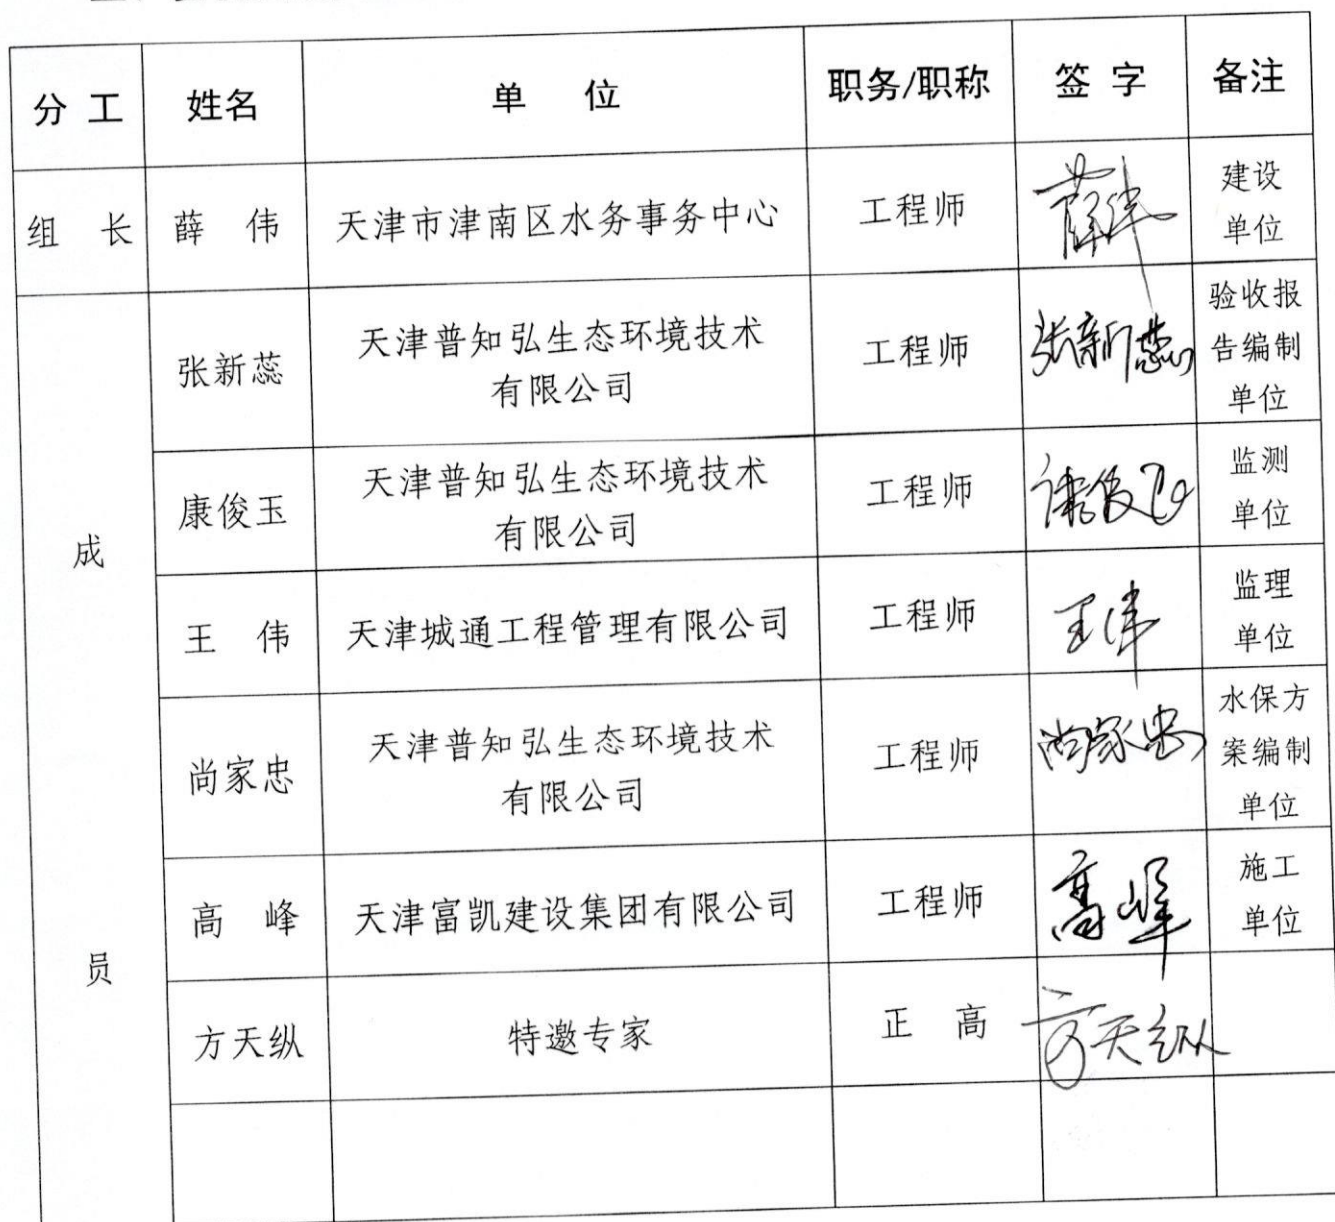 分 工 姓名 单 位 职务/职称 签 字 备注
组 长 薛 伟 天津市津南区水务事务中心 工程师 薛伟 建设
单位
成
员
张新蕊 天津普知弘生态环境技术
有限公司 工程师 张新蕊 验收报
告编制
单位
康俊玉 天津普知弘生态环境技术
有限公司 工程师 康俊玉 监测
单位
王 伟 天津城通工程管理有限公司 工程师 王伟 监理
单位
尚家忠 天津普知弘生态环境技术
有限公司 工程师 尚家忠 水保方
案编制
单位
高 峰 天津富凯建设集团有限公司 工程师 高峰 施工
单位
方天纵 特邀专家 正 高 方天纵